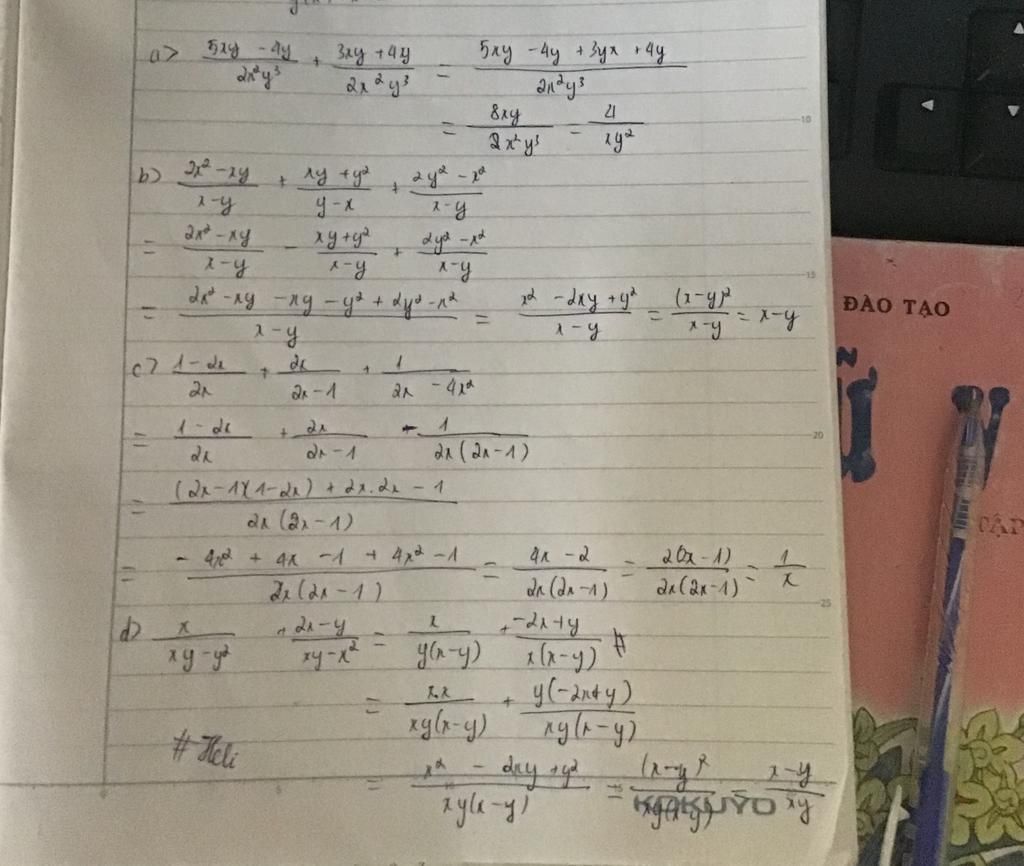 a> (5xy - 4y)/(2x²y³) + (3xy + 4y)/(2x²y³) = (5xy - 4y + 3yx + 4y)/(2x²y³)
= 8xy/(2x²y³) = 4/(xy²)
10
b) (2x² - xy)/(x - y) + (xy + y²)/(y - x) + (2y² - x²)/(x - y)
= (2x² - xy)/(x - y) - (xy + y²)/(x - y) + (2y² - x²)/(x - y)
15
= (2x² - xy - xy - y² + 2y² - x²)/(x - y) = (x² - 2xy + y²)/(x - y) = (x - y)²/(x - y) = x - y
c> (1 - 2x)/(2x) + 2x/(2x - 1) + 1/(2x - 4x²)
= (1 - 2x)/(2x) + 2x/(2x - 1) - 1/(2x(2x - 1))
20
= ((2x - 1)(1 - 2x) + 2x.2x - 1)/(2x(2x - 1))
= (- 4x² + 4x - 1 + 4x² - 1)/(2x(2x - 1)) = (4x - 2)/(2x(2x - 1)) = 2(2x - 1)/(2x(2x - 1)) = 1/x
25
d> x/(xy - y²) + (2x - y)/(xy - x²) = x/(y(x - y)) + (-2x + y)/(x(x - y))
= x.x/(xy(x - y)) + y(-2x + y)/(xy(x - y))
# Heli
= (x² - 2xy + y²)/(xy(x - y)) = (x - y)²/(xy(x - y)) = (x - y)/(xy)
KOKUYO
ĐÀO TẠO
TẬP